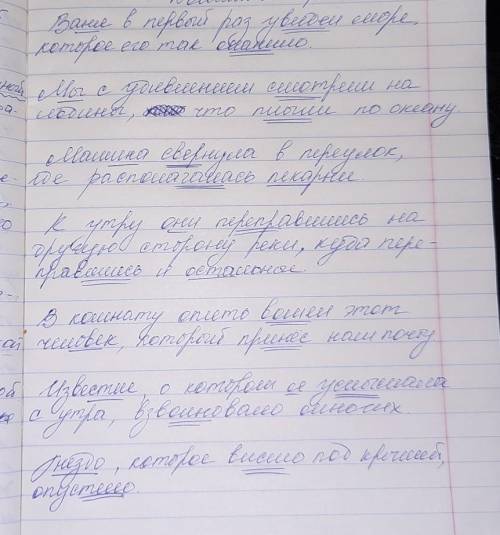 Ваня в первый раз увидел море,
которое его так манило.
Мы с удивлением смотрели на
льдины, что плыли по океану
Машина свернула в переулок,
где располагалась пекарня
К утру они переправились на
другую сторону реки, куда пере-
правились и остальные.
В комнату опять вошел этот
человек, который принёс нам почту
Известие, о котором я услышала
с утра, взволновало многих.
Гнездо, которое висело под крышей,
опустело.